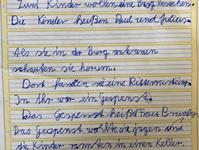 Zwei Kinder wollen eine Burg besuchen.
Die Kinder heißen Paul und Julius.
Als sie in der Burg ankamen
schauten sie herum.
Dort fanden sie eine Ritterrüstung.
In ihr war ein Gespenst.
Das Gespenst heißt Frau
Das Gespenst wollte sie jagen und
die Kinder rannten in einen Keller.